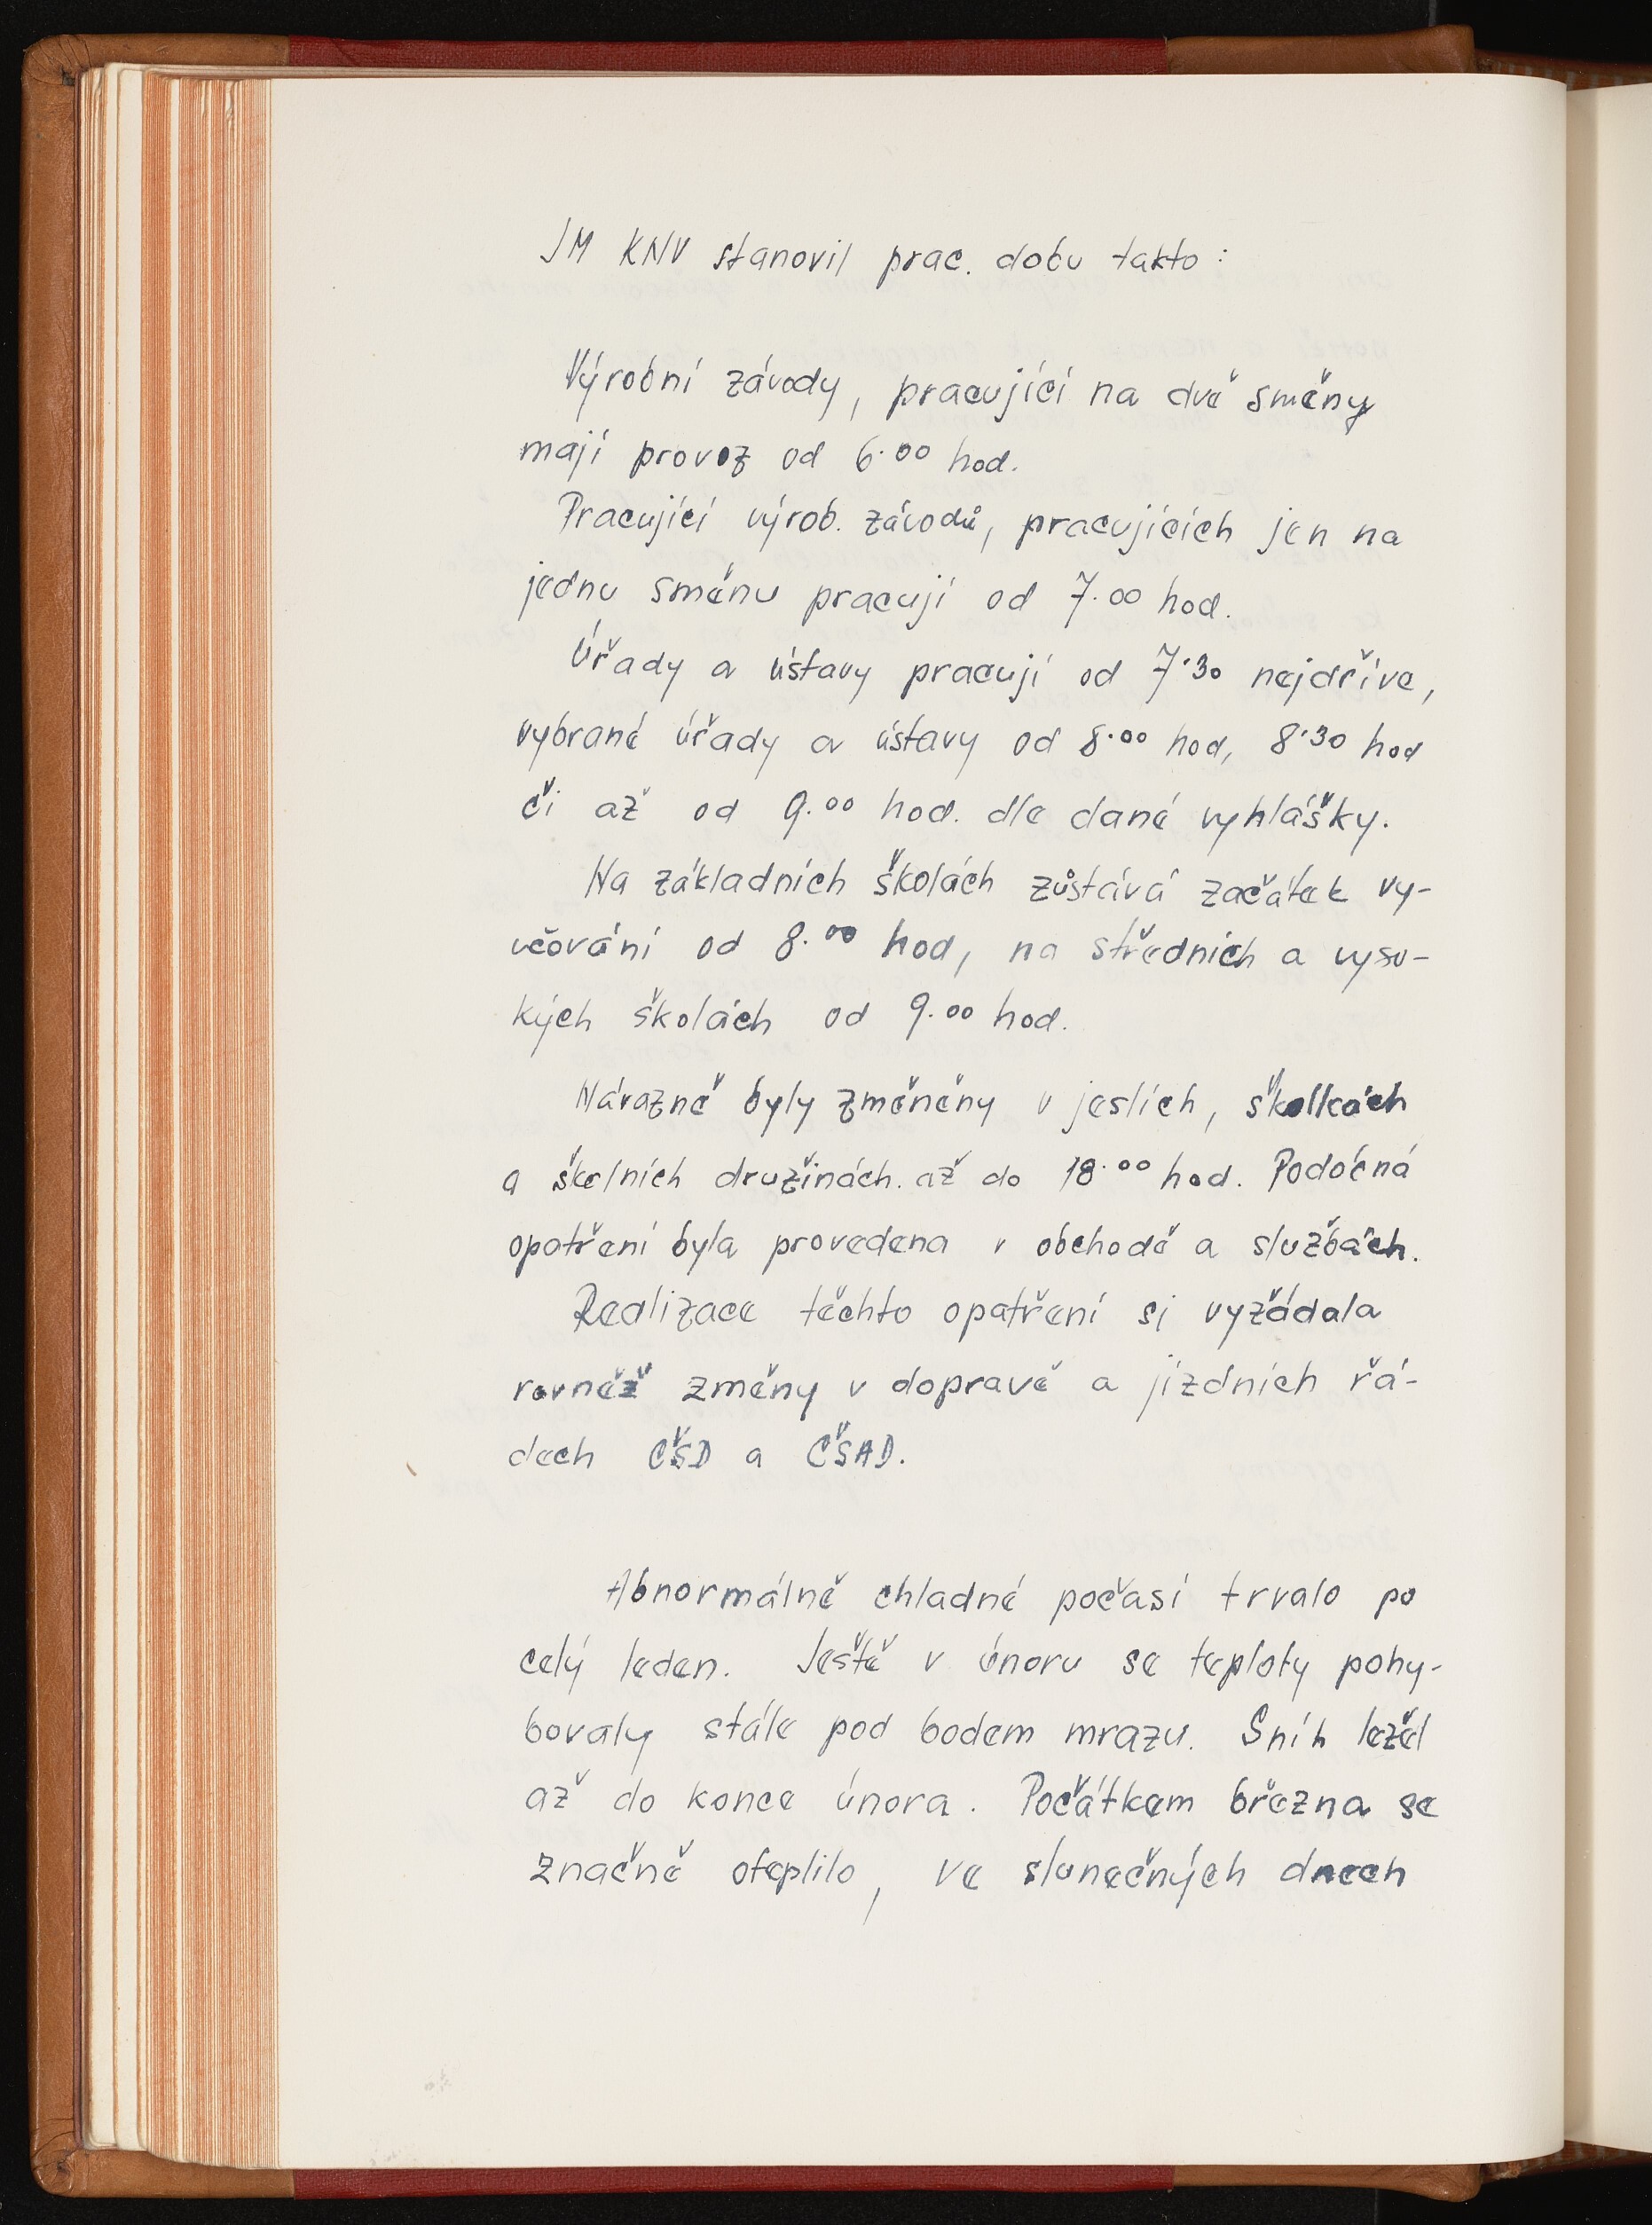 JM KNV stanovil prac. dobu takto:
Výrobní závody, pracující na dvě směny
mají provoz od 6.00 hod.
Pracující výrob. závodů, pracujících jen na
jednu směnu pracují od 7.00 hod.
Úřady a ústavy pracují od 7.30 nejdříve,
vybrané úřady a ústavy od 8.00 hod, 8.30 hod
či až od 9.00 hod. dle dané vyhlášky.
Na základních školách zůstává začátek vy-
učování od 8.00 hod, na středních a vyso-
kých školách od 9.00 hod.
Návazně byly změněny v jeslích, školkách
a školních družinách až do 18.00 hod. Podobná
opatření byla provedena v obchodě a službách.
Realizace těchto opatření si vyžádala
rovněž změny v dopravě a jízdních řá-
dech ČSD a ČSAD.
Abnormálně chladné počasí trvalo po
celý leden. Ještě v únoru se teploty pohy-
bovaly stále pod bodem mrazu. Sníh ležel
až do konce února. Počátkem března se
značně oteplilo, ve slunečných dnech